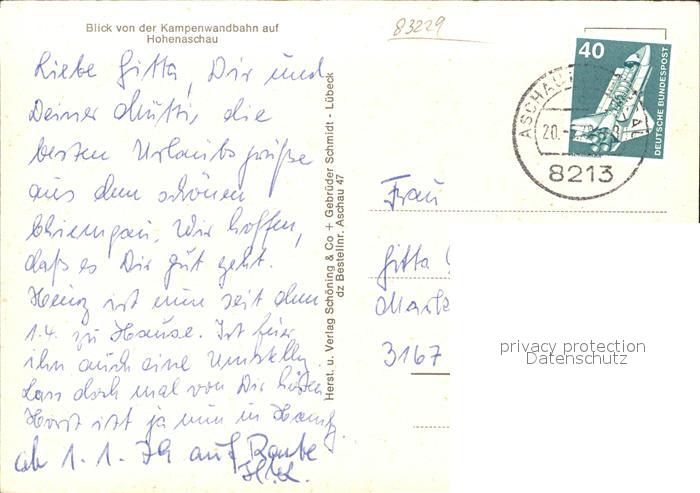 Blick von der Kampenwandbahn auf
Hohenaschau
83229
Liebe Gitta, Dir und
Deiner Mutti, die
besten Urlaubsgrüße
aus dem schönen
Chiemgau. Wir hoffen,
daß es Dir gut geht.
Heinz ist nun seit dem
1.4. zu Hause. Ist für
ihn auch eine Umstellg.
Lass doch mal von Dir hören
Horst ist ja nun in
ab 1.1.79 auf Rente
Herst. u. Verlag Schöning & Co + Gebrüder Schmidt - Lübeck
dz Bestellnr. Aschau 47
40
DEUTSCHE BUNDESPOST
ASCHAU
20.
8213
Frau
Gitta
3167
privacy protection
Datenschutz